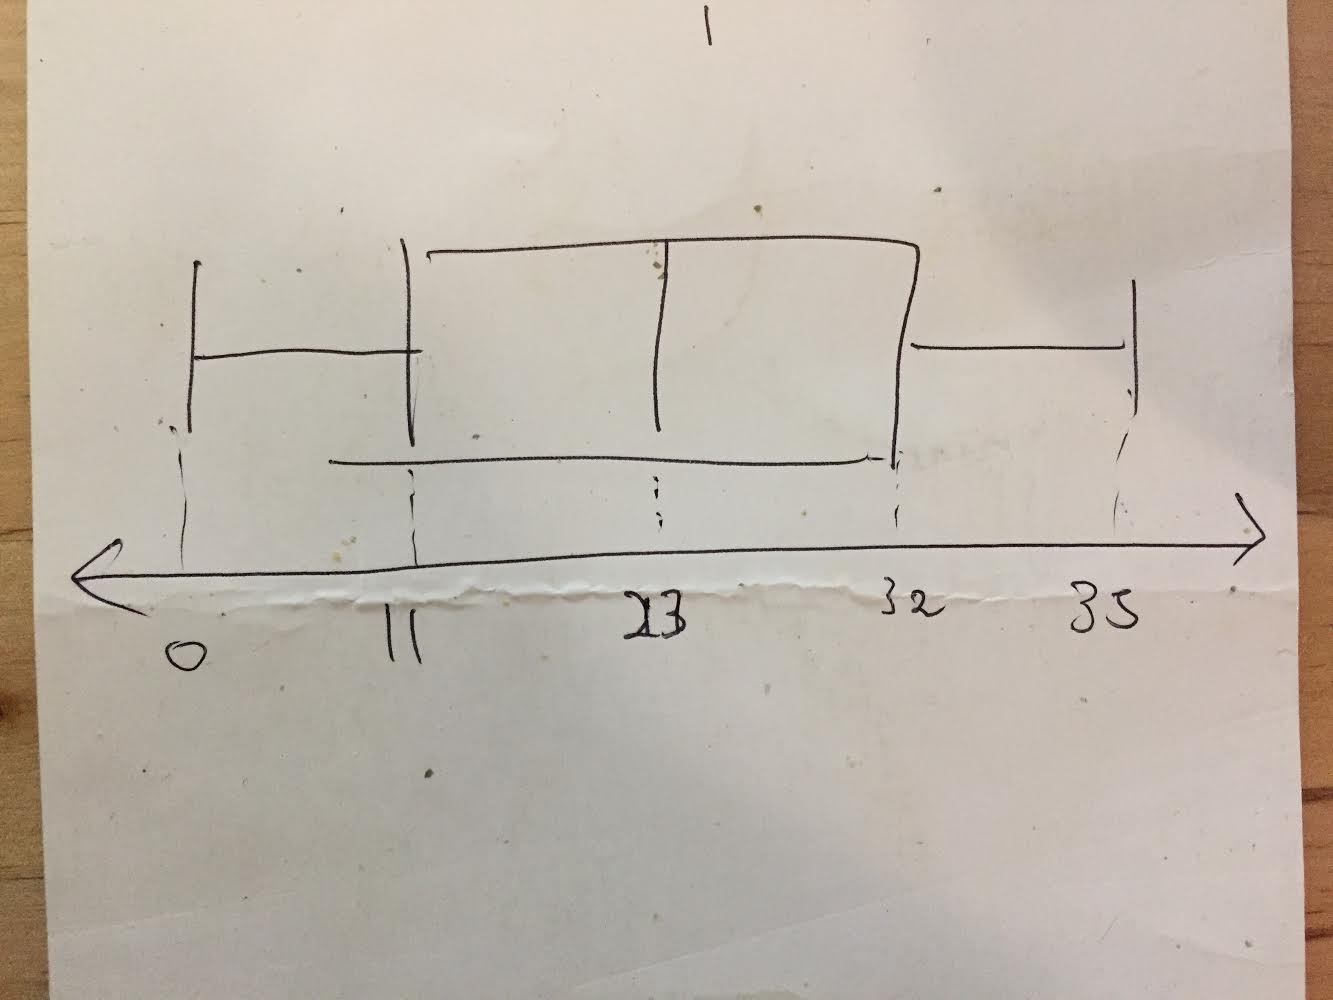 0 11 23 32 35